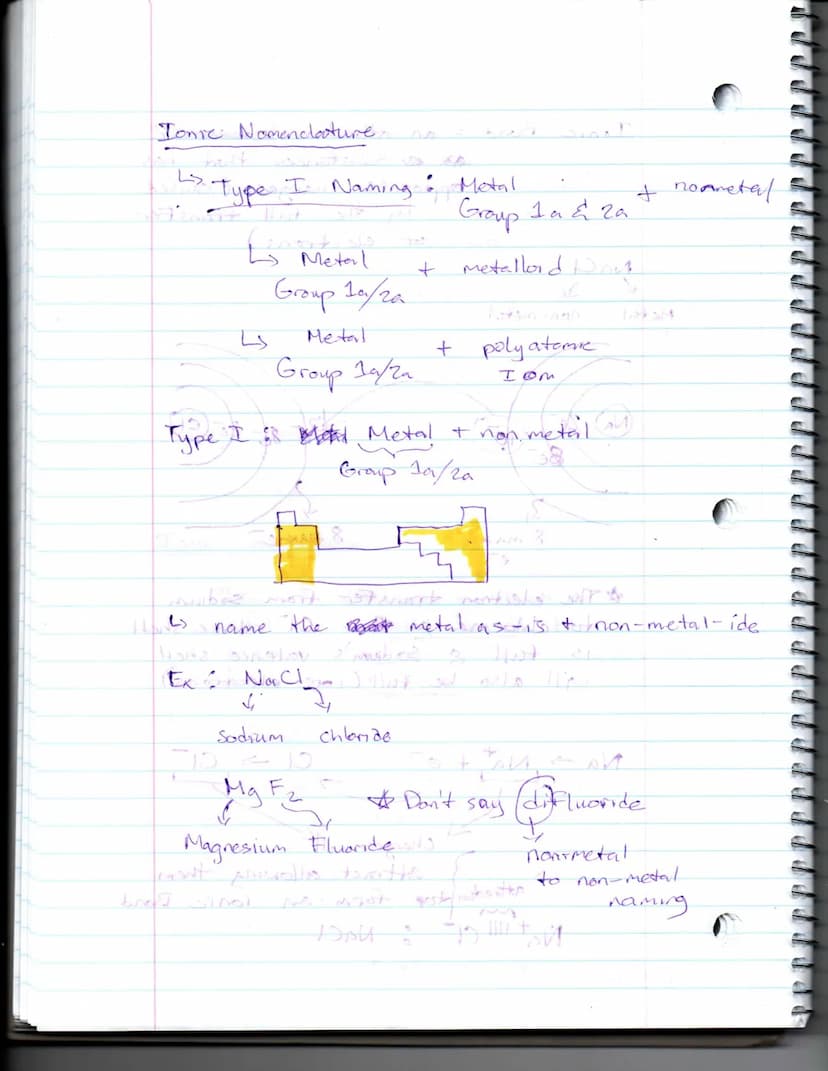 Ionic Nomenclature
↳ Type I Naming : Metal + nonmetal
Group 1a & 2a
↳ Metal + metalloid
Group 1a/2a
↳ Metal + polyatomic
Group 1a/2a Ion
Type I : Metal + non metal
Group 1a/2a
↳ name the metal as-is + non-metal-ide
Ex : NaCl
sodium chloride
MgF2 ☆ Don't say difluoride
Magnesium Fluoride
nonmetal
to non-metal
naming